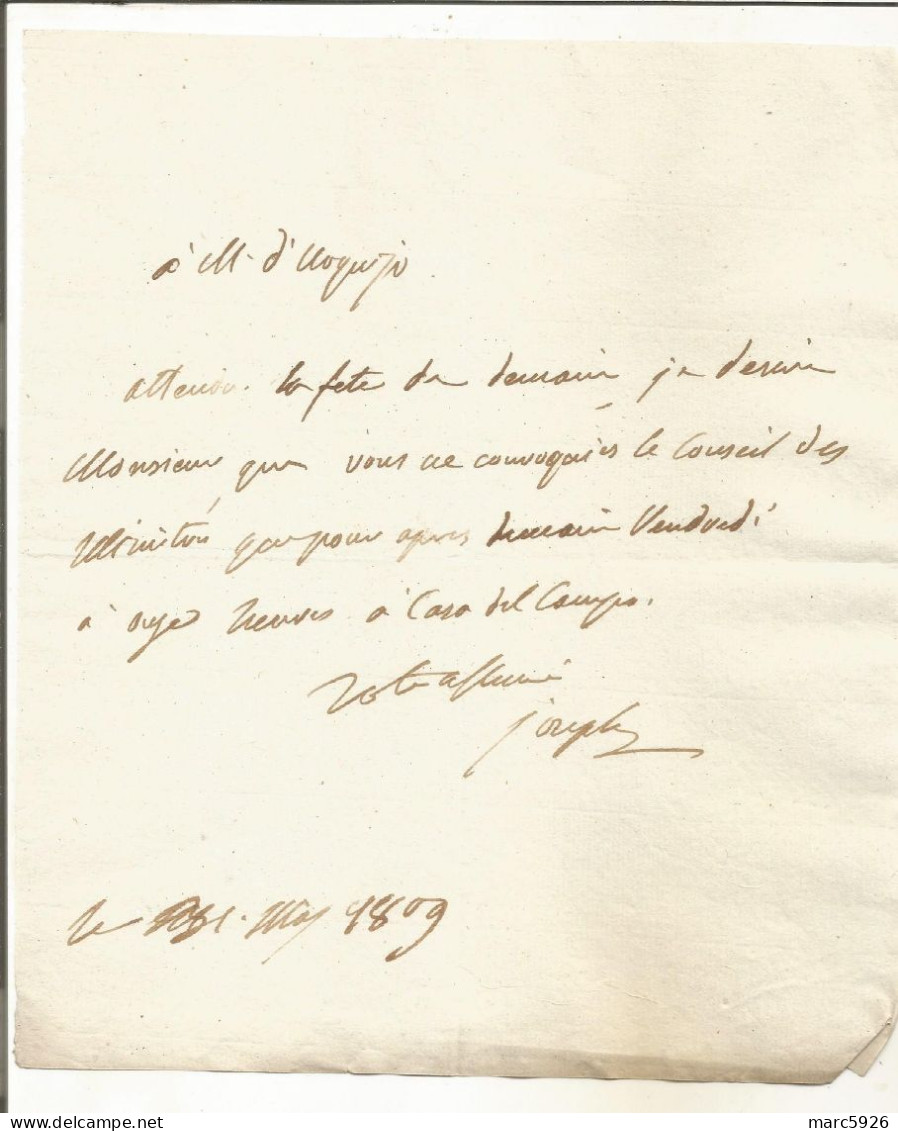 à M. d'Urquijo
attendu la fete de demain je desire
Monsieur que vous ne convoquiés le Conseil des
Ministres que pour apres demain Vendredi
à onze heures à Casa del Campo.
Votre affectionné
joseph
le 31. Mai 1809
marc5926